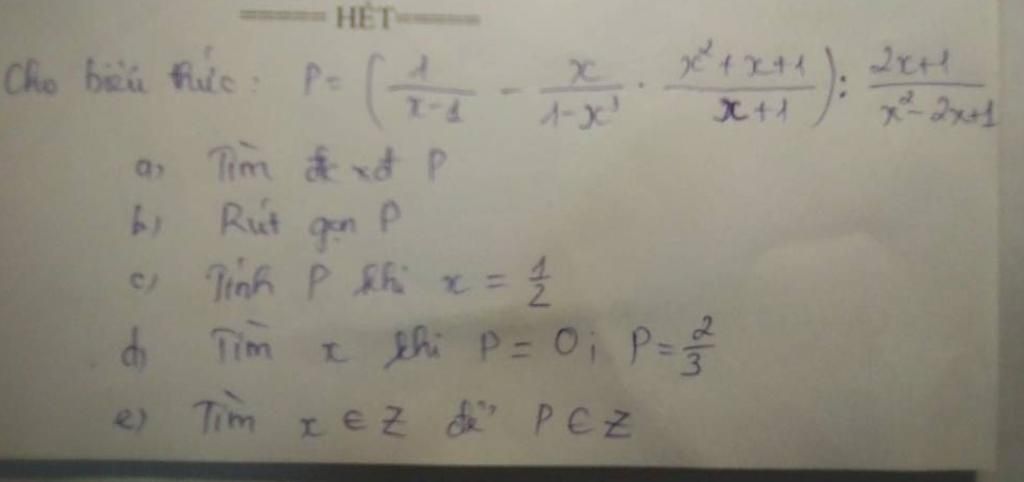 ===== HẾT=====
Cho biểu thức: P = (1/(x-1) - x/(1-x³) · (x²+x+1)/(x+1)) : (2x+1)/(x²-2x+1)
a) Tìm đk xđ P
b) Rút gọn P
c) Tính P khi x = 1/2
d) Tìm x khi P = 0; P = 2/3
e) Tìm x ∈ Z để P ∈ Z